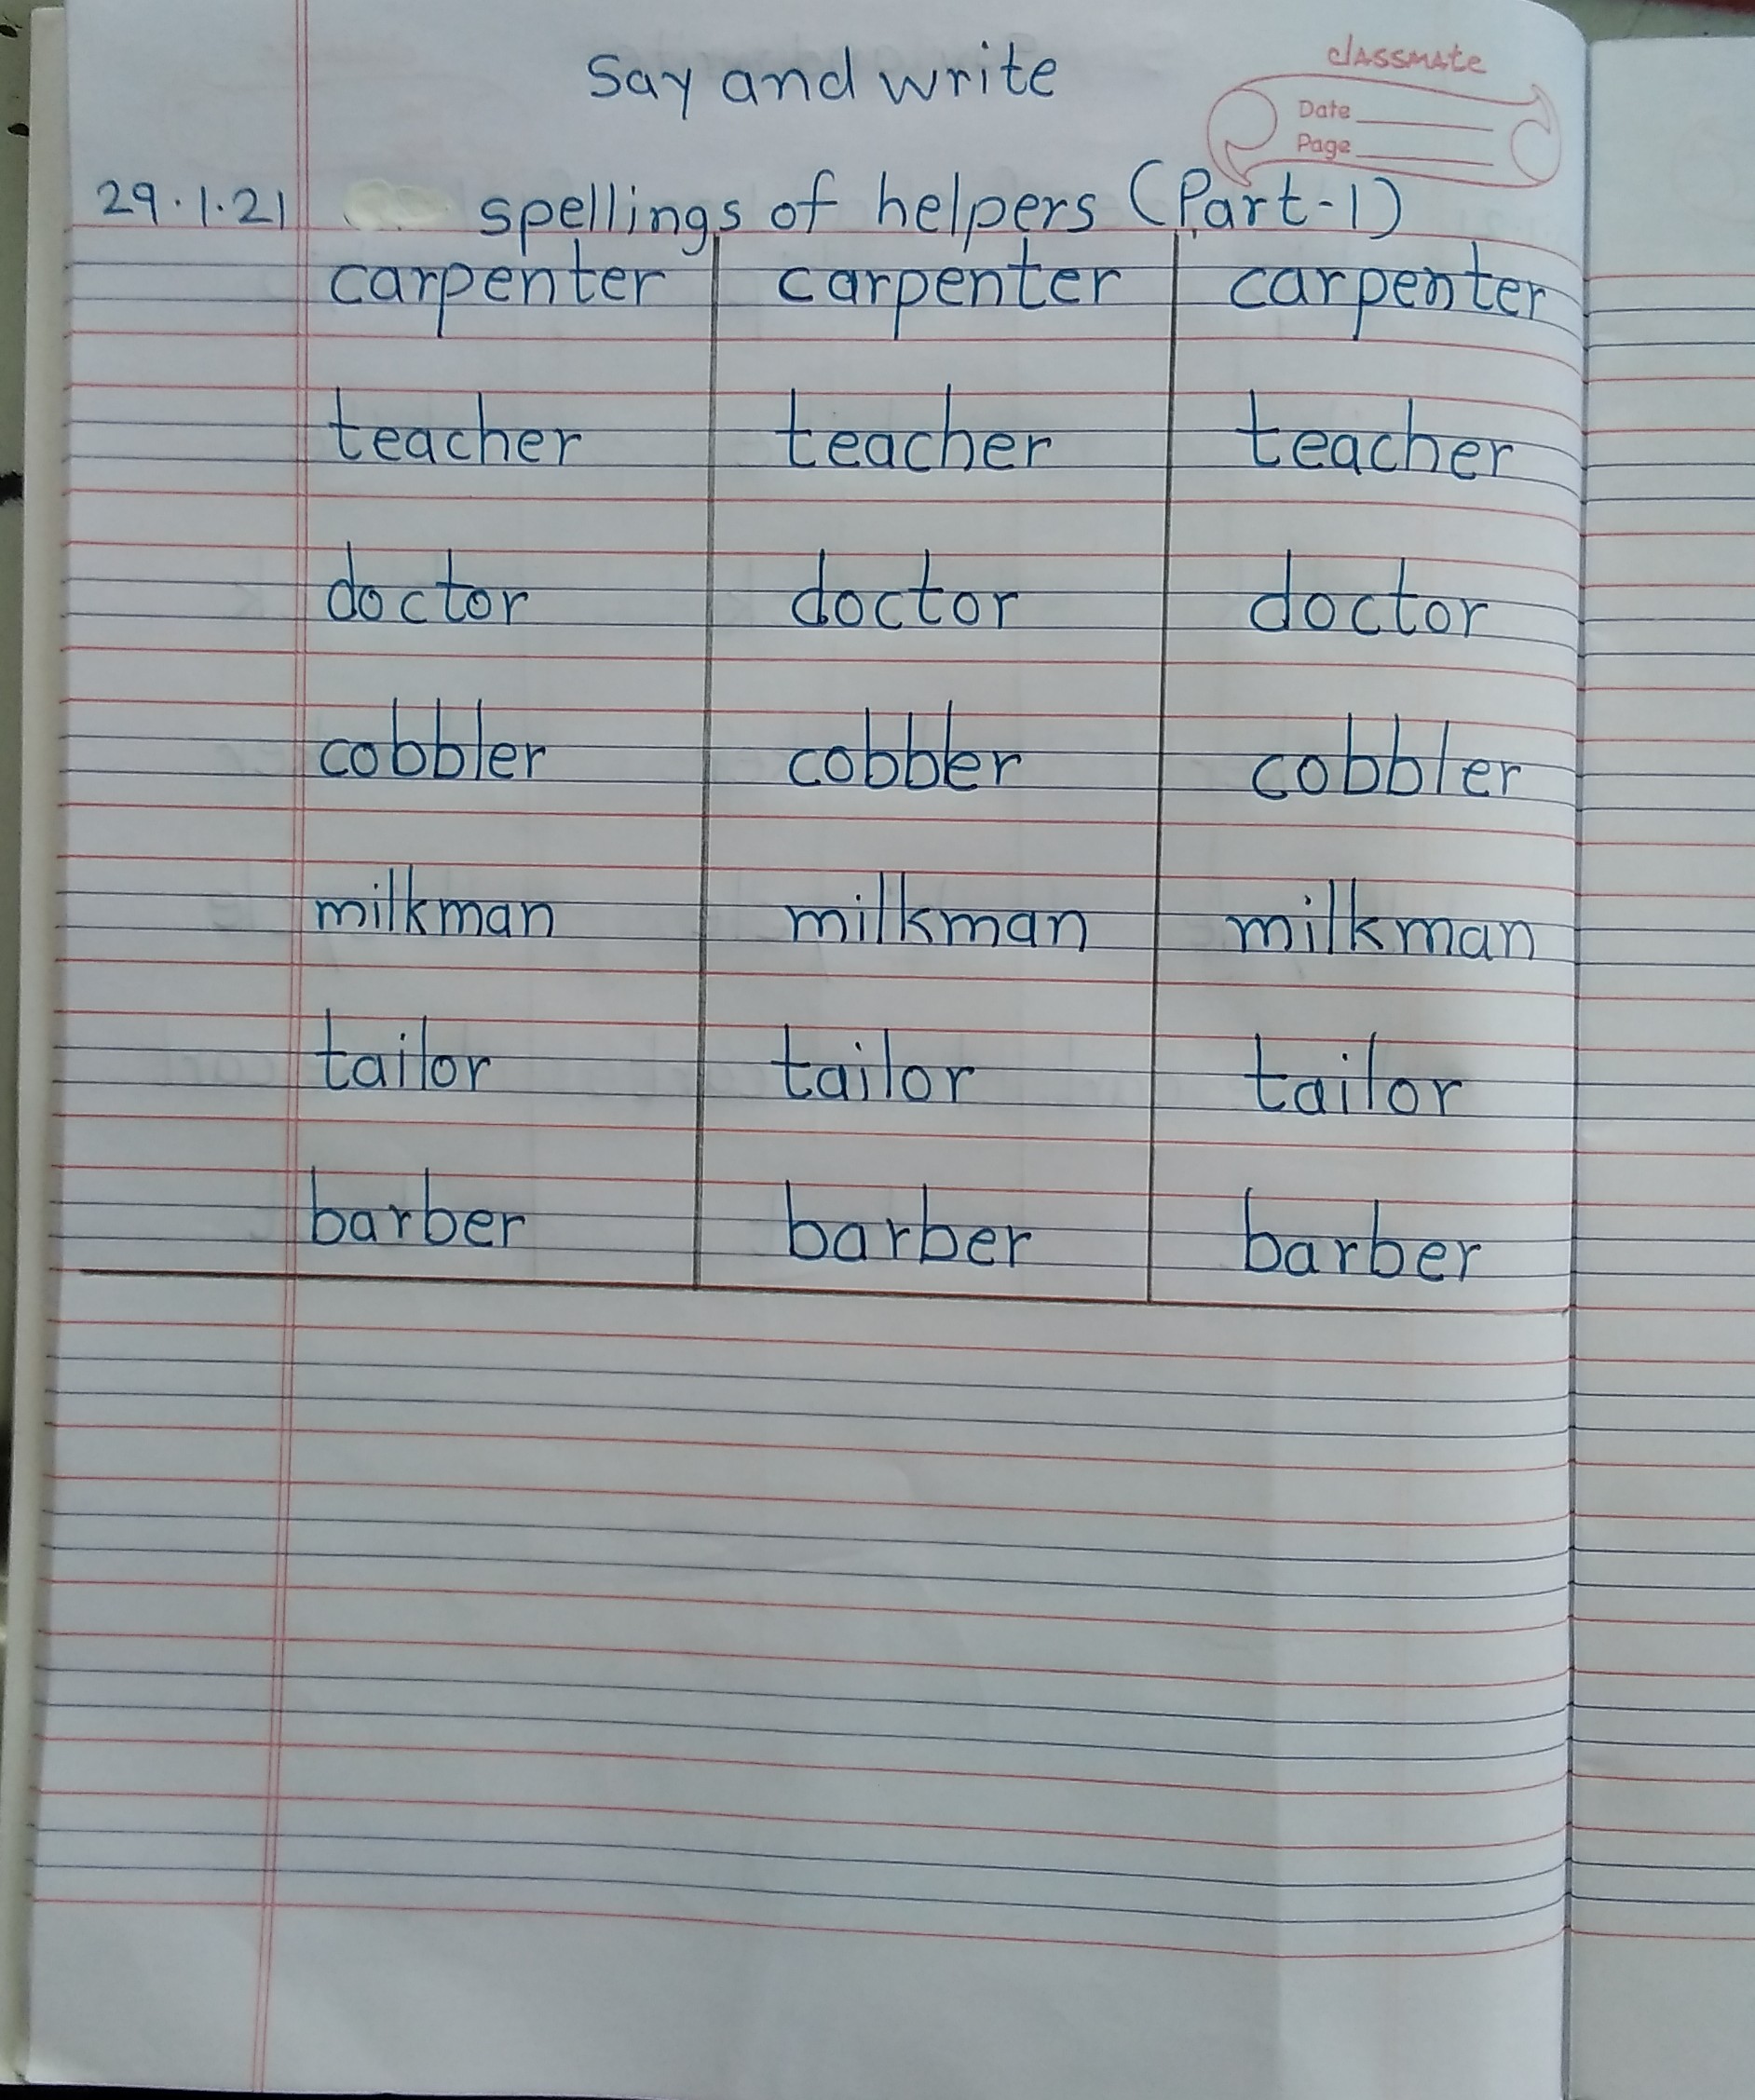 Say and write
classmate
Date
Page
29.1.21 spellings of helpers (Part-1)
carpenter carpenter carpenter
teacher teacher teacher
doctor doctor doctor
cobbler cobbler cobbler
milkman milkman milkman
tailor tailor tailor
barber barber barber